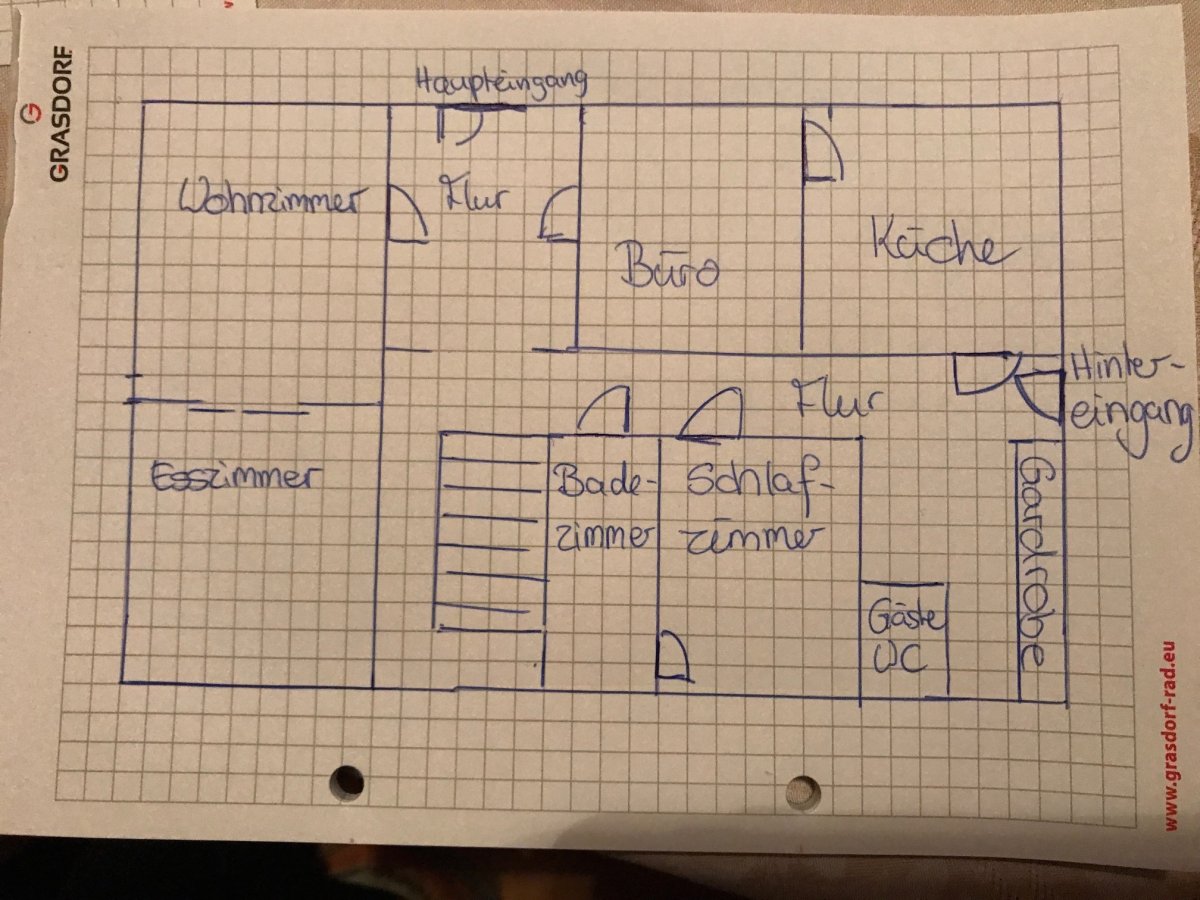 GRASDORF
Haupteingang
Wohnzimmer
Flur
Büro
Küche
Hinter-
eingang
Flur
Esszimmer
Bade-
zimmer
Schlaf-
zimmer
Gäste
WC
Gardrobe
www.grasdorf-rad.eu